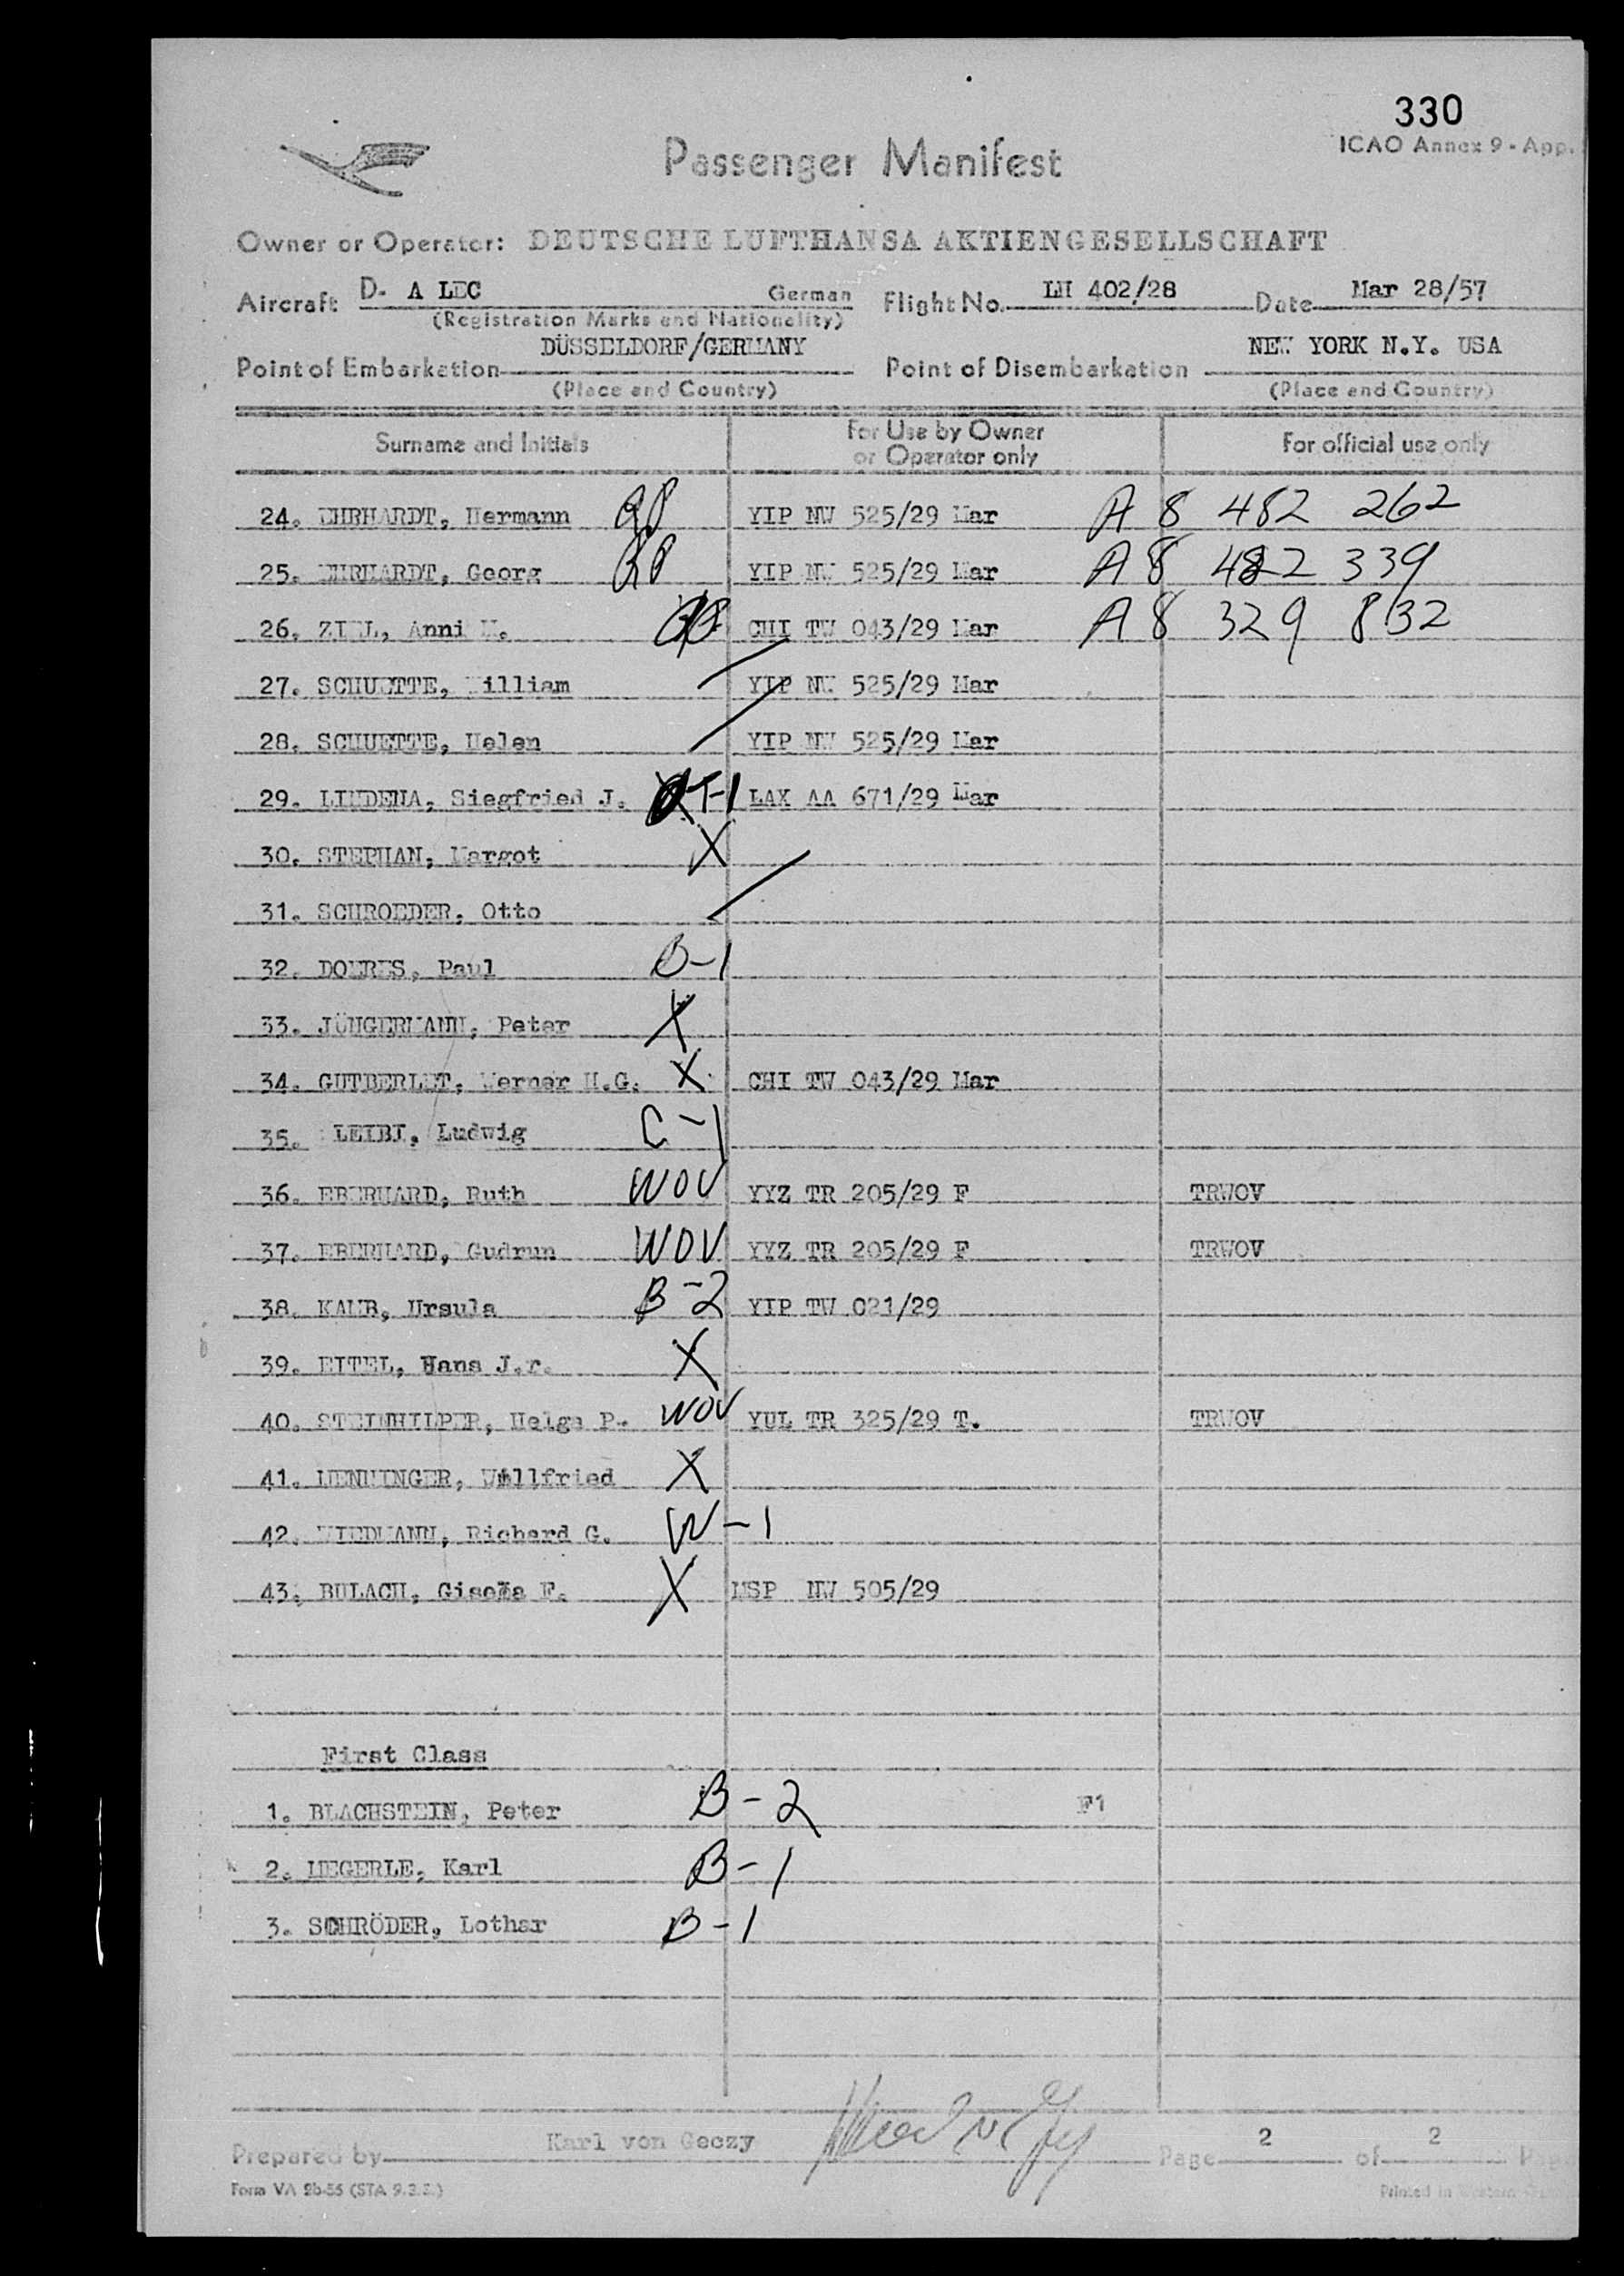 330
ICAO Annex 9 - App.
Passenger Manifest
Owner or Operator: DEUTSCHE LUFTHANSA AKTIENGESELLSCHAFT
Aircraft D- A LEC German Flight No. LH 402/28 Date Mar 28/57
(Registration Marks and Nationality)
Point of Embarkation DÜSSELDORF/GERMANY Point of Disembarkation NEW YORK N.Y. USA
(Place and Country) (Place and Country)
Surname and Initials For Use by Owner or Operator only For official use only
24. EHRHARDT, Hermann YIP NW 525/29 Mar A 8 482 262
25. EHRHARDT, Georg YIP NW 525/29 Mar A 8 482 339
26. Anni M. CHI TW 043/29 Mar A 8 329 832
27. SCHUETTE, William YIP NW 525/29 Mar
28. SCHUETTE, Helen YIP NW 525/29 Mar
29. Siegfried J. T-1 LAX AA 671/29 Mar
30. STEPHAN, Margot X
31. SCHROEDER, Otto
32. DOERES, Paul B-1
33. JÜNGERMANN, Peter X
34. GUTBERLET, Werner H.G. X CHI TW 043/29 Mar
35. Ludwig C-1
36. EBERHARD, Ruth WOV YYZ TR 205/29 F TRWOV
37. EBERHARD, Gudrun WOV YYZ TR 205/29 F TRWOV
38. KAUB, Ursula B-2 YIP TW 021/29
39. EITEL, Hans J.r. X
40. STEINHILPER, Helga P. WOV YUL TR 325/29 T. TRWOV
41. Willfried X
42. WIEDMANN, Richard G. W-1
43. BULACH, Gisela F. X MSP NW 505/29
First Class
1. BLACHSTEIN, Peter B-2 F1
2. HEGERLE, Karl B-1
3. SCHRÖDER, Lothar B-1
Prepared by Karl von Geczy Page 2 of 2
Form VA 2b-55 (STA 9.3.2.)
Printed in Western